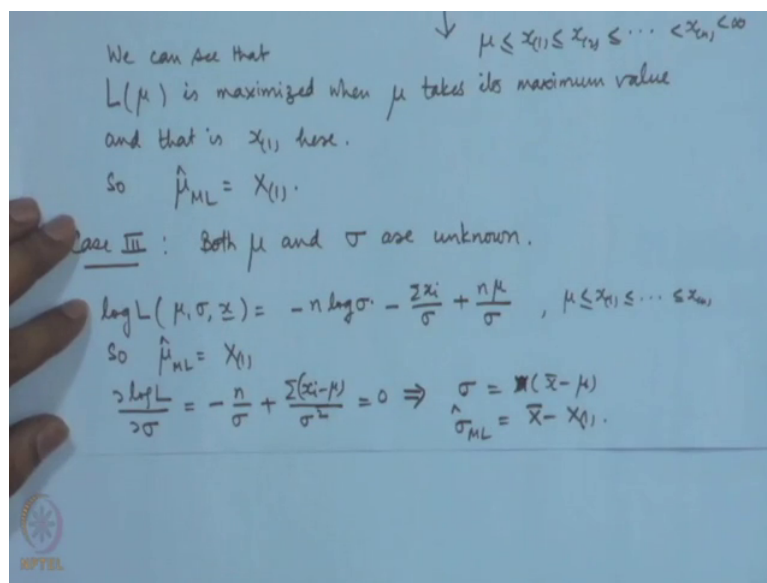 ↓ μ ≤ x₍₁₎ ≤ x₍₂₎ ≤ ⋯ < x₍ₙ₎ < ∞
We can see that
L(μ) is maximized when μ takes its maximum value
and that is x₍₁₎ here.
So μ̂_ML = X₍₁₎.
Case III : Both μ and σ are unknown.
log L(μ, σ, x̲) = - n log σ - Σxi/σ + nμ/σ , μ ≤ x₍₁₎ ≤ ⋯ ≤ x₍ₙ₎
So μ̂_ML = X₍₁₎
∂ log L/∂σ = - n/σ + Σ(xi-μ)/σ² = 0 ⇒ σ = (x̄ - μ)
σ̂_ML = X̄ - X₍₁₎.
NPTEL